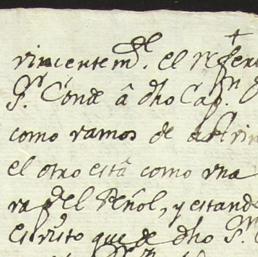 vincente md. el Rfe
Gr. Conde â dho Capn.
como vamos de
el otro està como vna
ra del Peñol, y estand
es visto que de dho Gr.